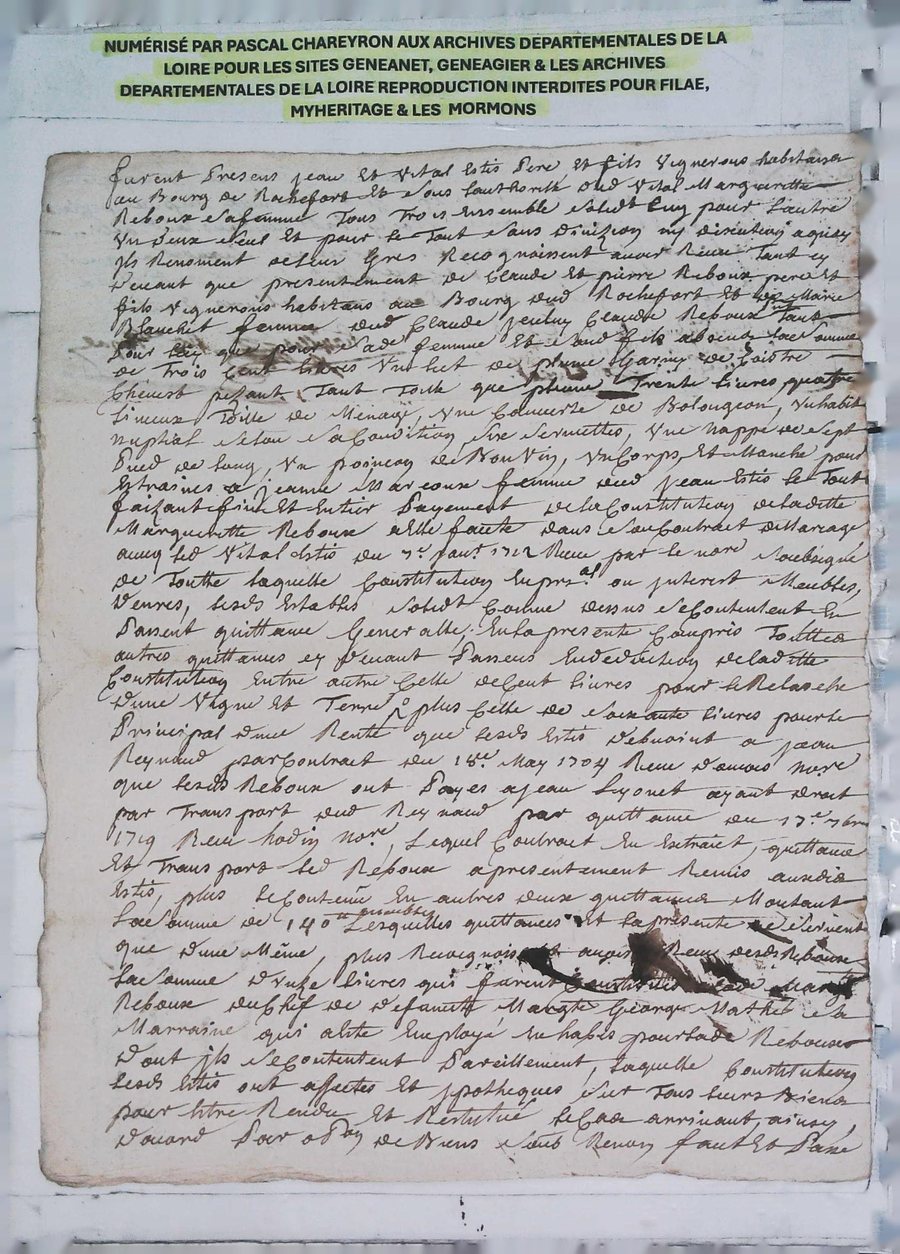 NUMÉRISÉ PAR PASCAL CHAREYRON AUX ARCHIVES DEPARTEMENTALES DE LA
LOIRE POUR LES SITES GENEANET, GENEAGIER & LES ARCHIVES
DEPARTEMENTALES DE LA LOIRE REPRODUCTION INTERDITES POUR FILAE,
MYHERITAGE & LES MORMONS
furent Presens jean Et Vital Estis Pere Et fils Vignerons habitans
au Bourg de Rochefort Et Sous Lauthorité dud Vital Margueritte
Reboux Safemme Tous Trois Ensemble Solidt Lung pour Lautre
Un Deux Seul Et pour le Tout Sans Division ny discution aquoy
Ils Renoncent deleur Gres Recognoissent avoir Receu Tant cy
devant que presentement de Claude Et pierre Reboux pere Et
fils Vignerons habitans au Bourg dud Rochefort Et de Marie
Blanchet femme dud Claude jceluy Claude Reboux Tant
Pour luy que pour Sad femme Et Sond fils absents La Somme
de Trois Cent livres Un lict de plume Garny de
Chevest pesant, Tant Toille que plume Trente livres quatre
linceux Toille de Menage, Une Couverte de Bolongeon, Un habit
nuptial Selon Sa Condition, Six Serviettes, Une nappe de Sept
Pied de long, Un poincon de Bon Vin, Un Corps Et Manche pour
Estraines a jeanne Marcoux femme dud jean Estis le Tout
faizant fin Et Entier Payement de la Constitution de laditte
Margueritte Reboux a Elle faitte dans Son Contract de Mariage
avecq led Vital Estis du 7e janr 1712 Receu par le nore Soubsigné
de Toutte laquelle Constitution En prs.al ou jnterest Meubles,
Denrees, lesds Estis Solidt Comme dessus Se Contentent En
Passent quittance Generalle, En la presente Compris Touttes
autres quittances cy devant Passees En deduction de laditte
Constitution Entre autre Celle de Cent livres pour le Relasche
d'une Vigne Et Terre, plus Celle de Soixante livres pour le
Principal d'une Rente que lesds Estis debvoint a jean
Reynaud par Contract du 18e May 1704 Receu nore
que lesds Reboux ont Payes a jean Lyonet ayant droit
par Transport dud Reynaud par quittance du 17e 7bre
1719 Receu hodin nore, Lequel Contract En Extrait, quittance
Et Transport led Reboux a presentement Remis auxdis
Estis, plus le Contenu En autres deux quittances Montant
La Somme de 140 Lesquelles quittances Et la presente ne Servent
que d'une Même, plus Recognoissent avoir Receu desds Reboux
La Somme d'Unze livres qui furent Constitués a lade Margte
Reboux du Chef de deffunte Margte George Mathé Sa
Marraine qui a Eté Employé En habis pour lade Reboux
Dont jls Se Contentent Pareillement, Laquelle Constitution
lesds Estis ont affectés Et ypothequés Sur Tous leurs Biens
pour Etre Rendu Et Restitué le Cas arrivant, ainsy
d'acord Par de Biens Sous Renon fait Et Passé